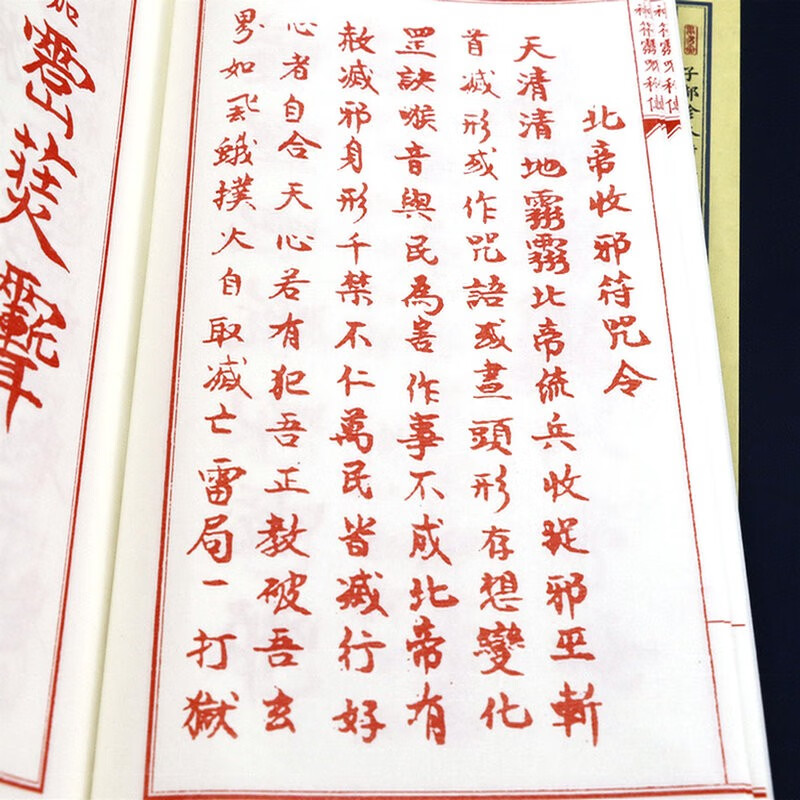 北帝收邪符咒令
天清清地霧霧北帝流兵收捉邪巫斬
首滅形或作咒語或畫頭形存想變化
罡訣喉音與民為害作事不成北帝有
赦滅邪身形千禁不仁萬民皆滅行好
心者自合天心若有犯吾正教破吾玄
界如飛蛾撲火自取滅亡雷局一打獄